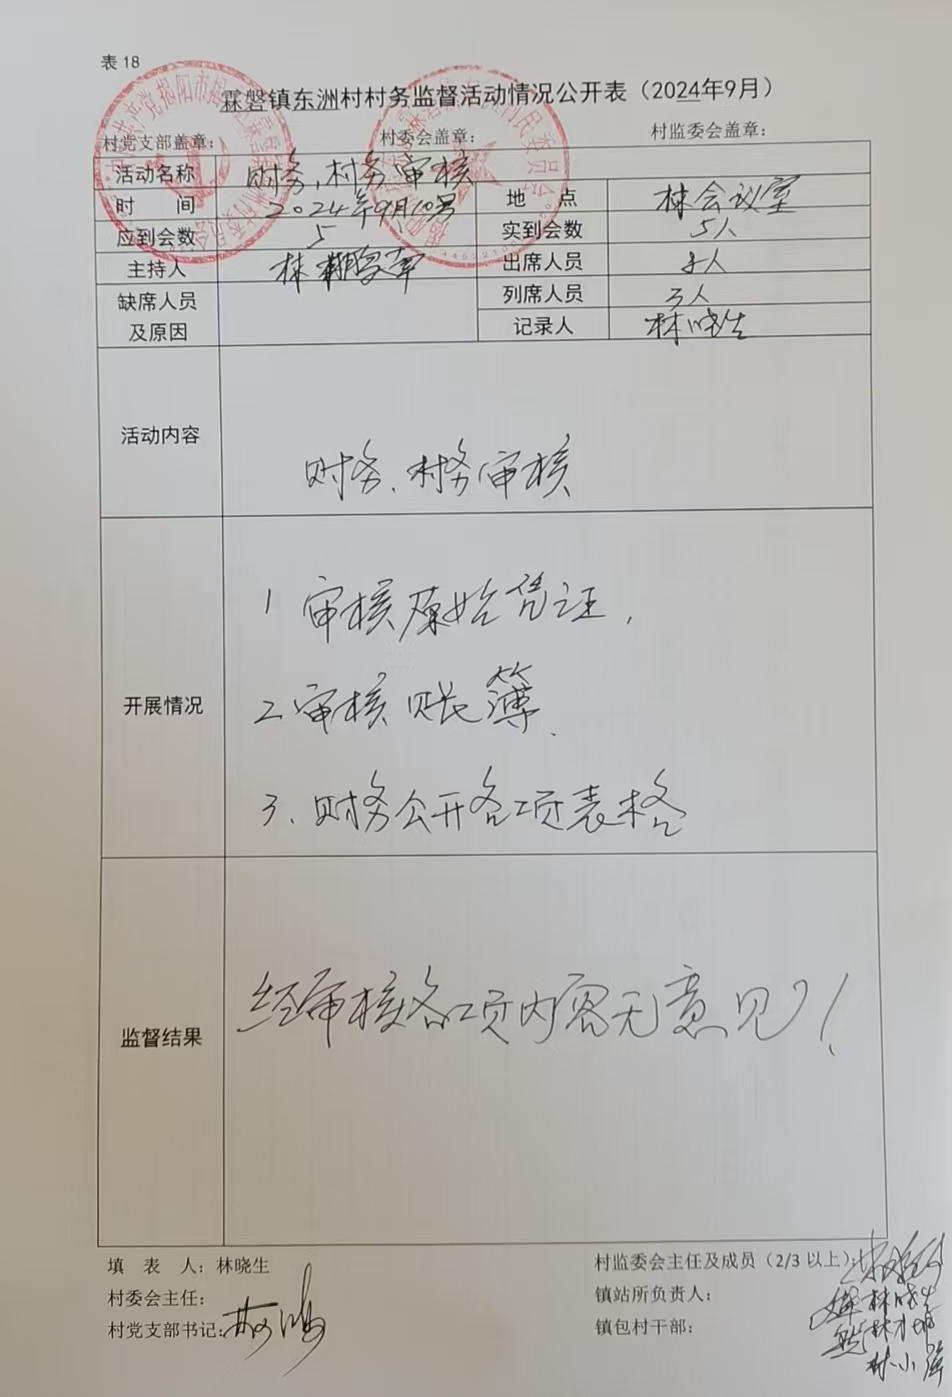 表 18
霖磐镇东洲村村务监督活动情况公开表（2024年9月）
村党支部盖章： 村委会盖章： 村监委会盖章：
活动名称 财务,村务审核
时 间 2024年9月10号 地 点 村会议室
应到会数 5 实到会数 5人
主持人 林 出席人员 人
缺席人员及原因 列席人员 3人
记录人 林晓生
活动内容 财务、村务审核
开展情况
1 审核原始凭证,
2 审核账簿、
3、财务公开各项表格
监督结果 经审核各项内容无意见!
填 表 人：林晓生 村监委会主任及成员（2/3 以上）：
村委会主任： 镇站所负责人： 林晓生
村党支部书记： 镇包村干部：
林小萍